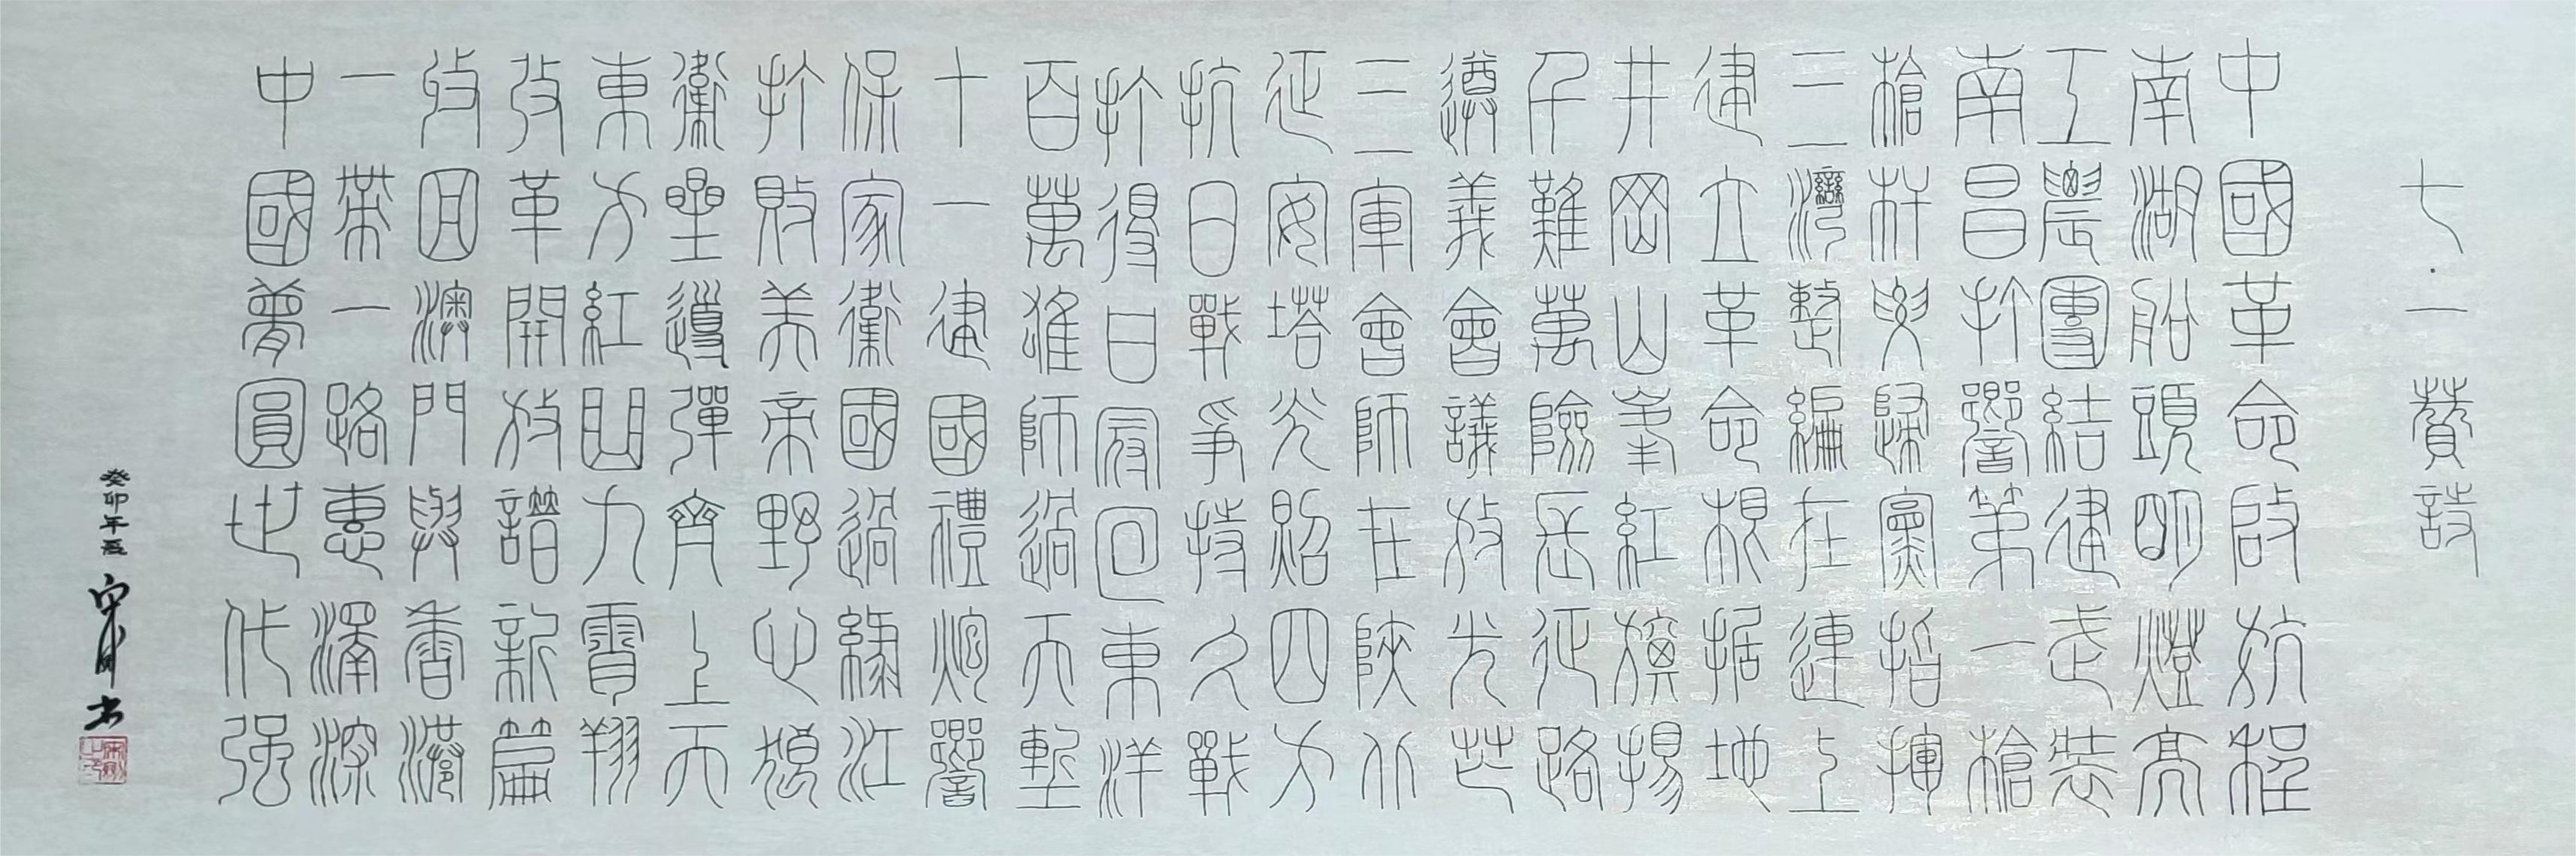 七·一贊詩
中國革命啟航程
南湖船頭明燈亮
工農團結建武裝
南昌打響第一槍
槍杆與歸黨指揮
三灣整編在連上
建立革命根据地
井岡山峯紅旗揚
千難萬險長征路
遵義會議放光芒
三軍會師在陝北
延安塔光照四方
抗日戰爭持久戰
打得日寇回東洋
百萬雄師過天塹
十一建國禮炮響
保家衛國過綠江
打敗美帝野心狼
衛星導彈齊上天
東方紅曲九霄翔
改革開放譜新篇
收回澳門與香港
一帶一路惠澤深
中國夢圓世代强
癸卯年夏
书